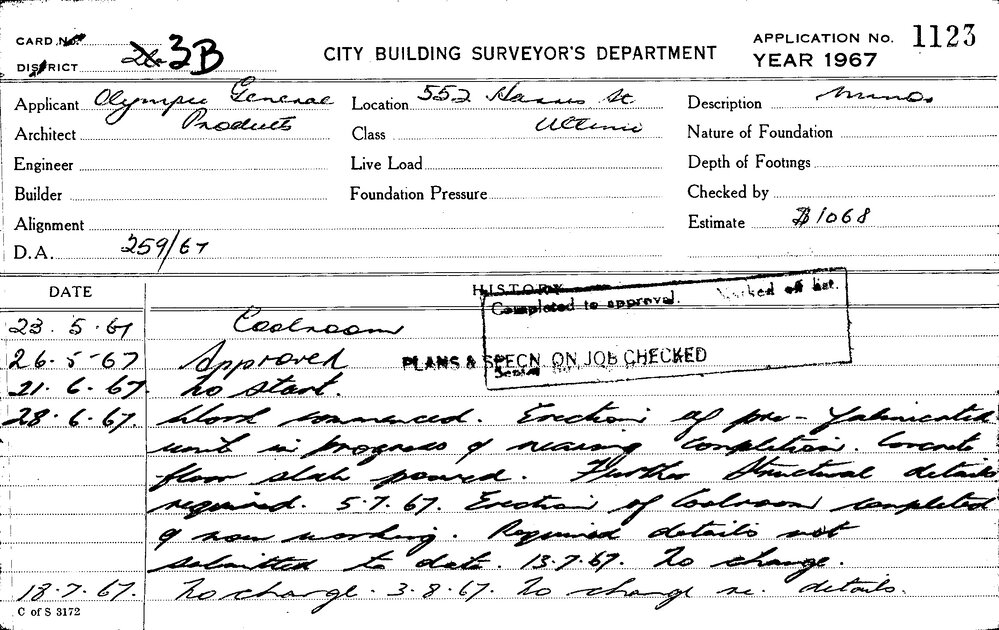 CARD No. 3B
DISTRICT
CITY BUILDING SURVEYOR'S DEPARTMENT
APPLICATION No. 1123
YEAR 1967
Applicant Olympic General
Products
Location 552 Harris St
Description
Architect
Class
Nature of Foundation
Engineer
Live Load
Depth of Footings
Builder
Foundation Pressure
Checked by
Alignment
Estimate $1068
D.A. 259/67
DATE
HISTORY
Completed to approval. Marked off list.
23. 5. 67 Coolroom
26. 5. 67 Approved
PLANS & SPECN. ON JOB CHECKED
21. 6. 67. No start.
28. 6. 67. Work commenced. Erection of pre-fabricated
unit in progress & nearing completion. Concrete
floor slab poured. Further Structural details
required. 5.7.67. Erection of Coolroom completed
& now working. Required details not
submitted to date. 13.7.67. No change.
13.7.67. No change. 3.8.67. No change re. details.
C of S 3172